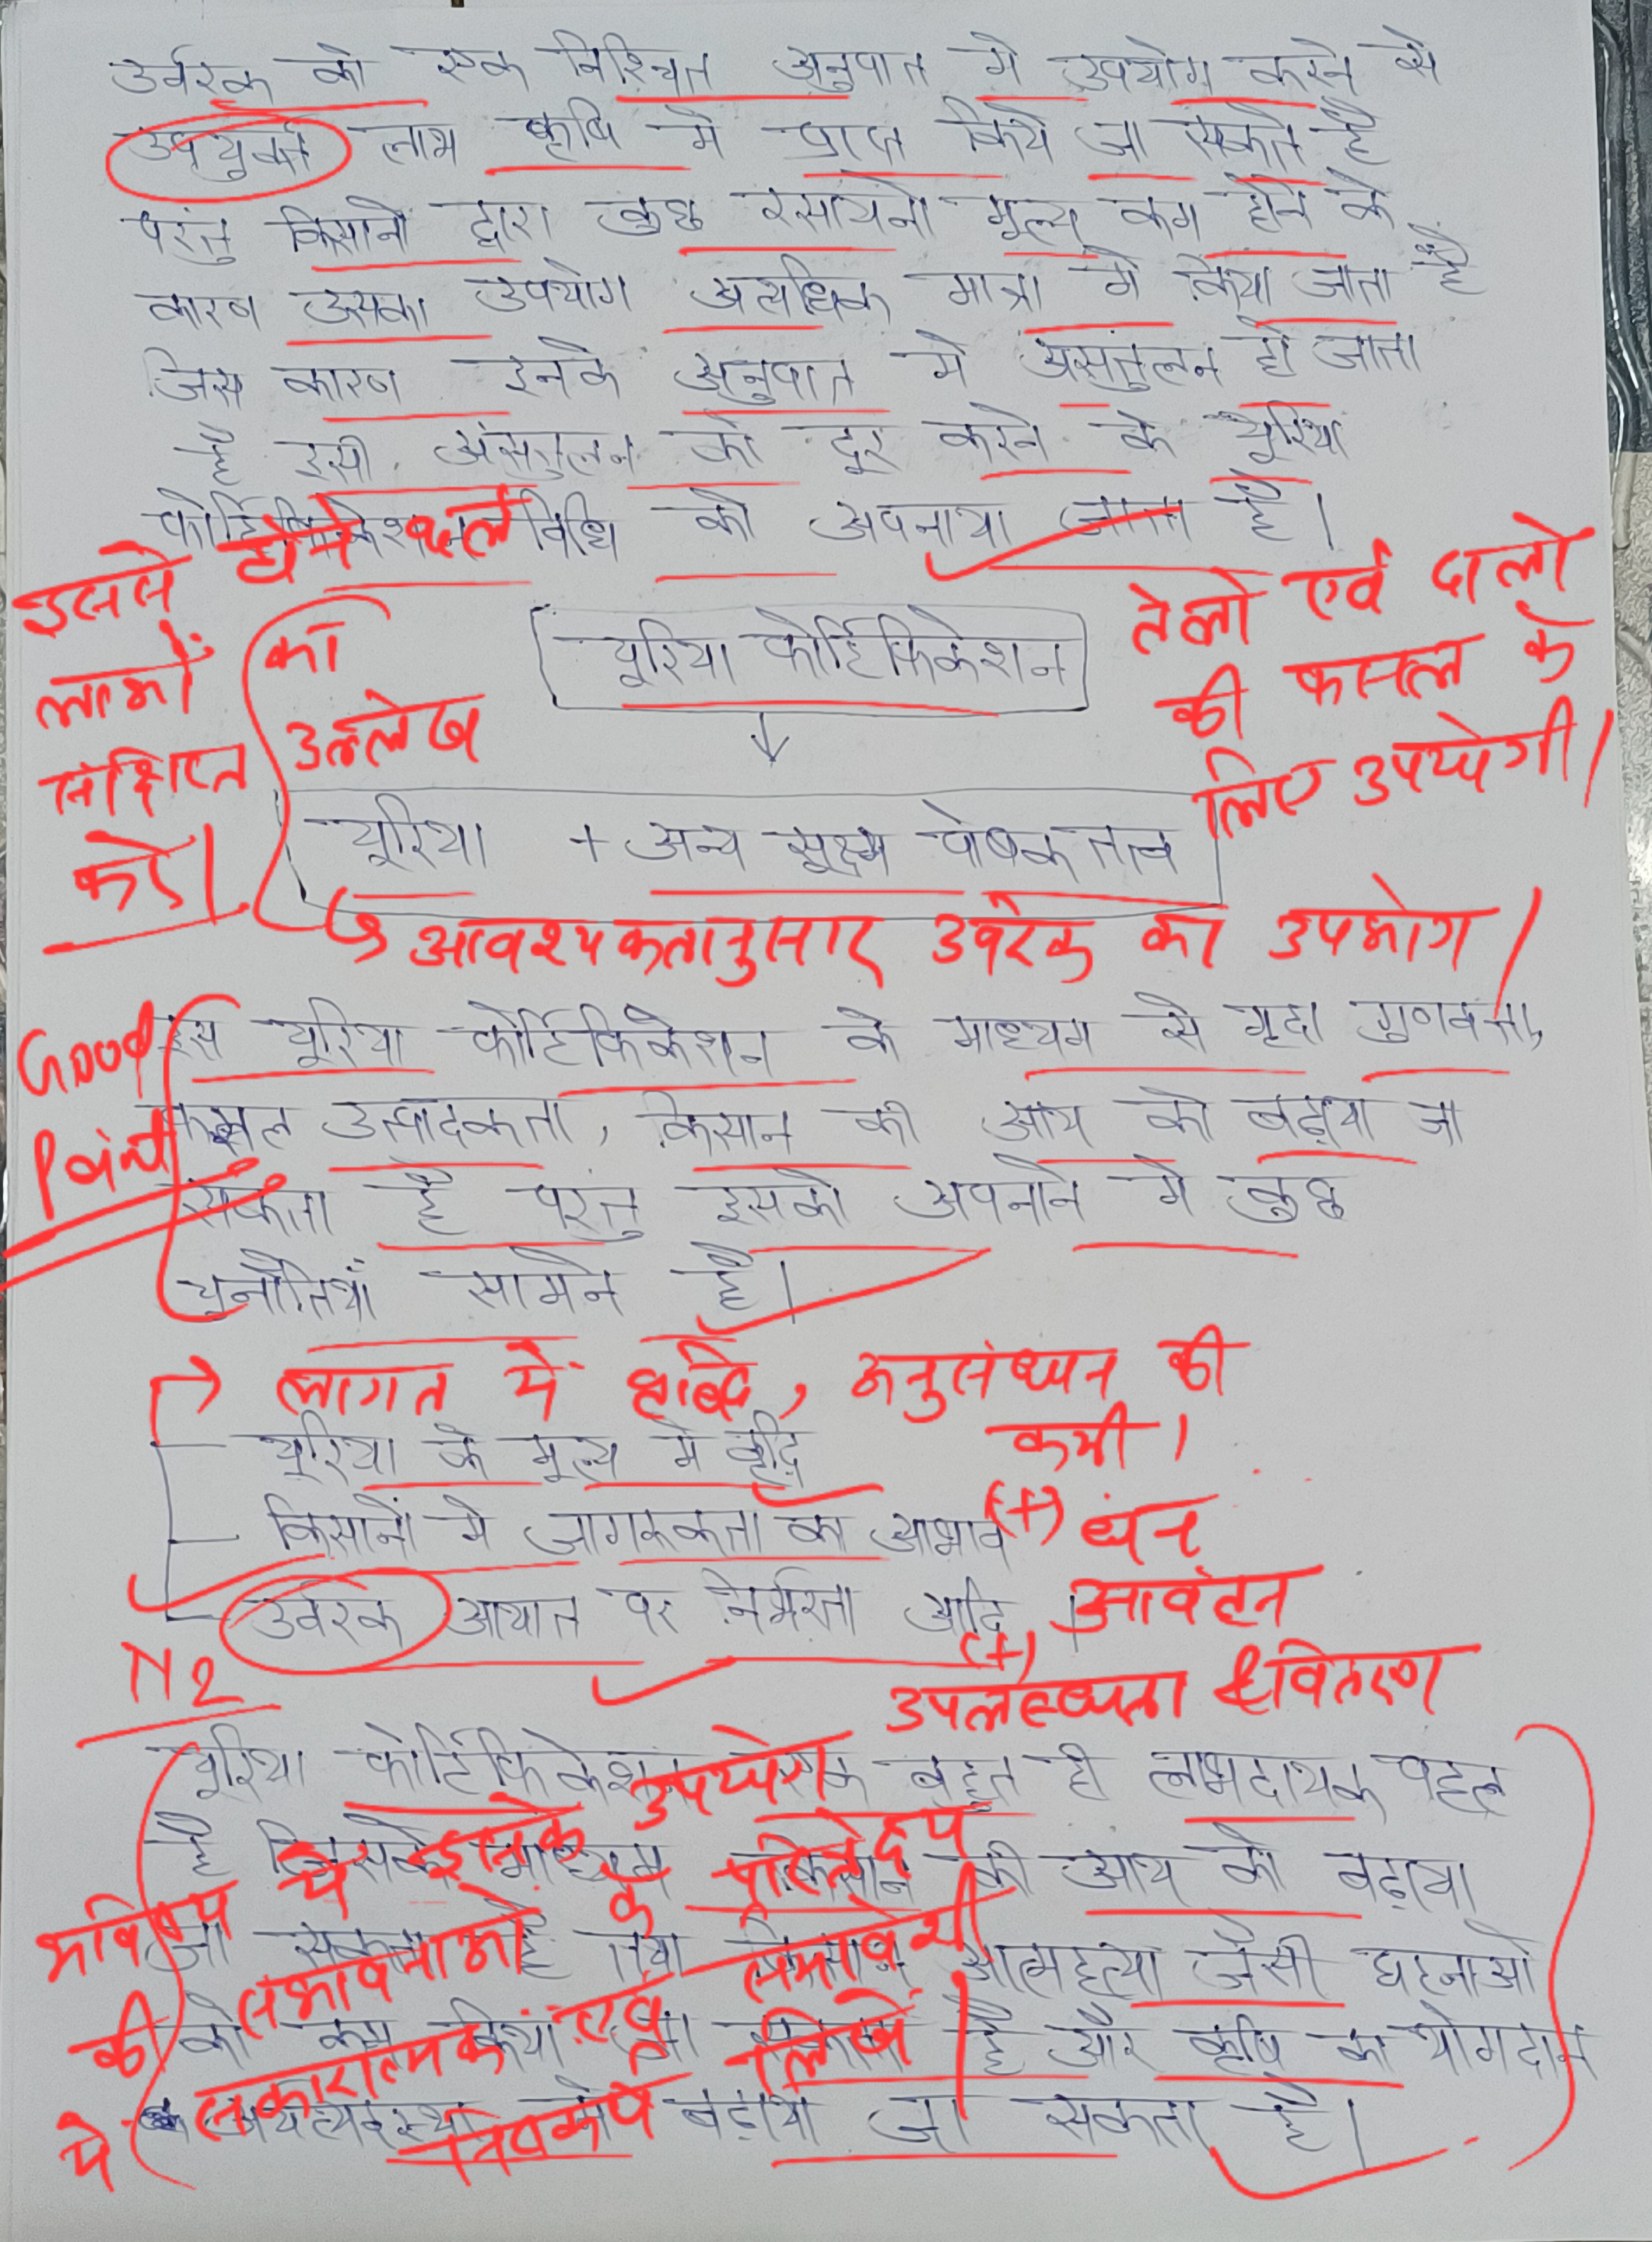 उर्वरक को एक निश्चित अनुपात मे उपयोग करने से
उपयुक्त लाभ कृषि मे प्राप्त किये जा सकते है
परंतु किसानो द्वारा कुछ रसायनो मूल्य कम होने के
कारण उसका उपयोग अत्यधिक मात्रा मे किया जाता है
जिस कारण इनके अनुपात मे असंतुलन हो जाता
है इसी असंतुलन को दूर करने के यूरिया
फोर्टिफिकेशन विधि को अपनाया जाता है।
इससे होने वाले
लाभों का
संक्षिप्त उल्लेख
करें।
तेलो एवं दालो
की फसल के
लिए उपयोगी।
यूरिया फोर्टिफिकेशन
↓
यूरिया + अन्य सूक्ष्म पोषक तत्व
आवश्यकतानुसार उर्वरक का उपभोग।
Good
Point
इस यूरिया फोर्टिफिकेशन के माध्यम से मृदा गुणवत्ता,
फसल उत्पादकता, किसान की आय को बढ़ाया जा
सकता है परंतु इसको अपनाने मे कुछ
चुनौतियाँ सामने है।
→ लागत में वृद्धि, अनुसंधान की
कमी।
यूरिया के मूल्य मे वृद्धि
किसानों मे जागरूकता का आभाव
(+) धन
आवंटन
उर्वरक आयात पर निर्भरता आदि।
(+)
उपलब्धता & वितरण
N2
यूरिया फोर्टिफिकेशन एक बहुत ही लाभदायक पहल
है जिसके माध्यम किसान की आय को बढ़ाया
जा सकता है तथा किसान आत्महत्या जैसी घटनाओ
को कम किया जा सकता है और कृषि का योगदान
अर्थव्यवस्था मे बढ़ाया जा सकता है।
भविष्य में इसके उपयोग
की संभावनाओं के परिप्रेक्ष्य
में सकारात्मक एवं समावेशी
निष्कर्ष लिखें।